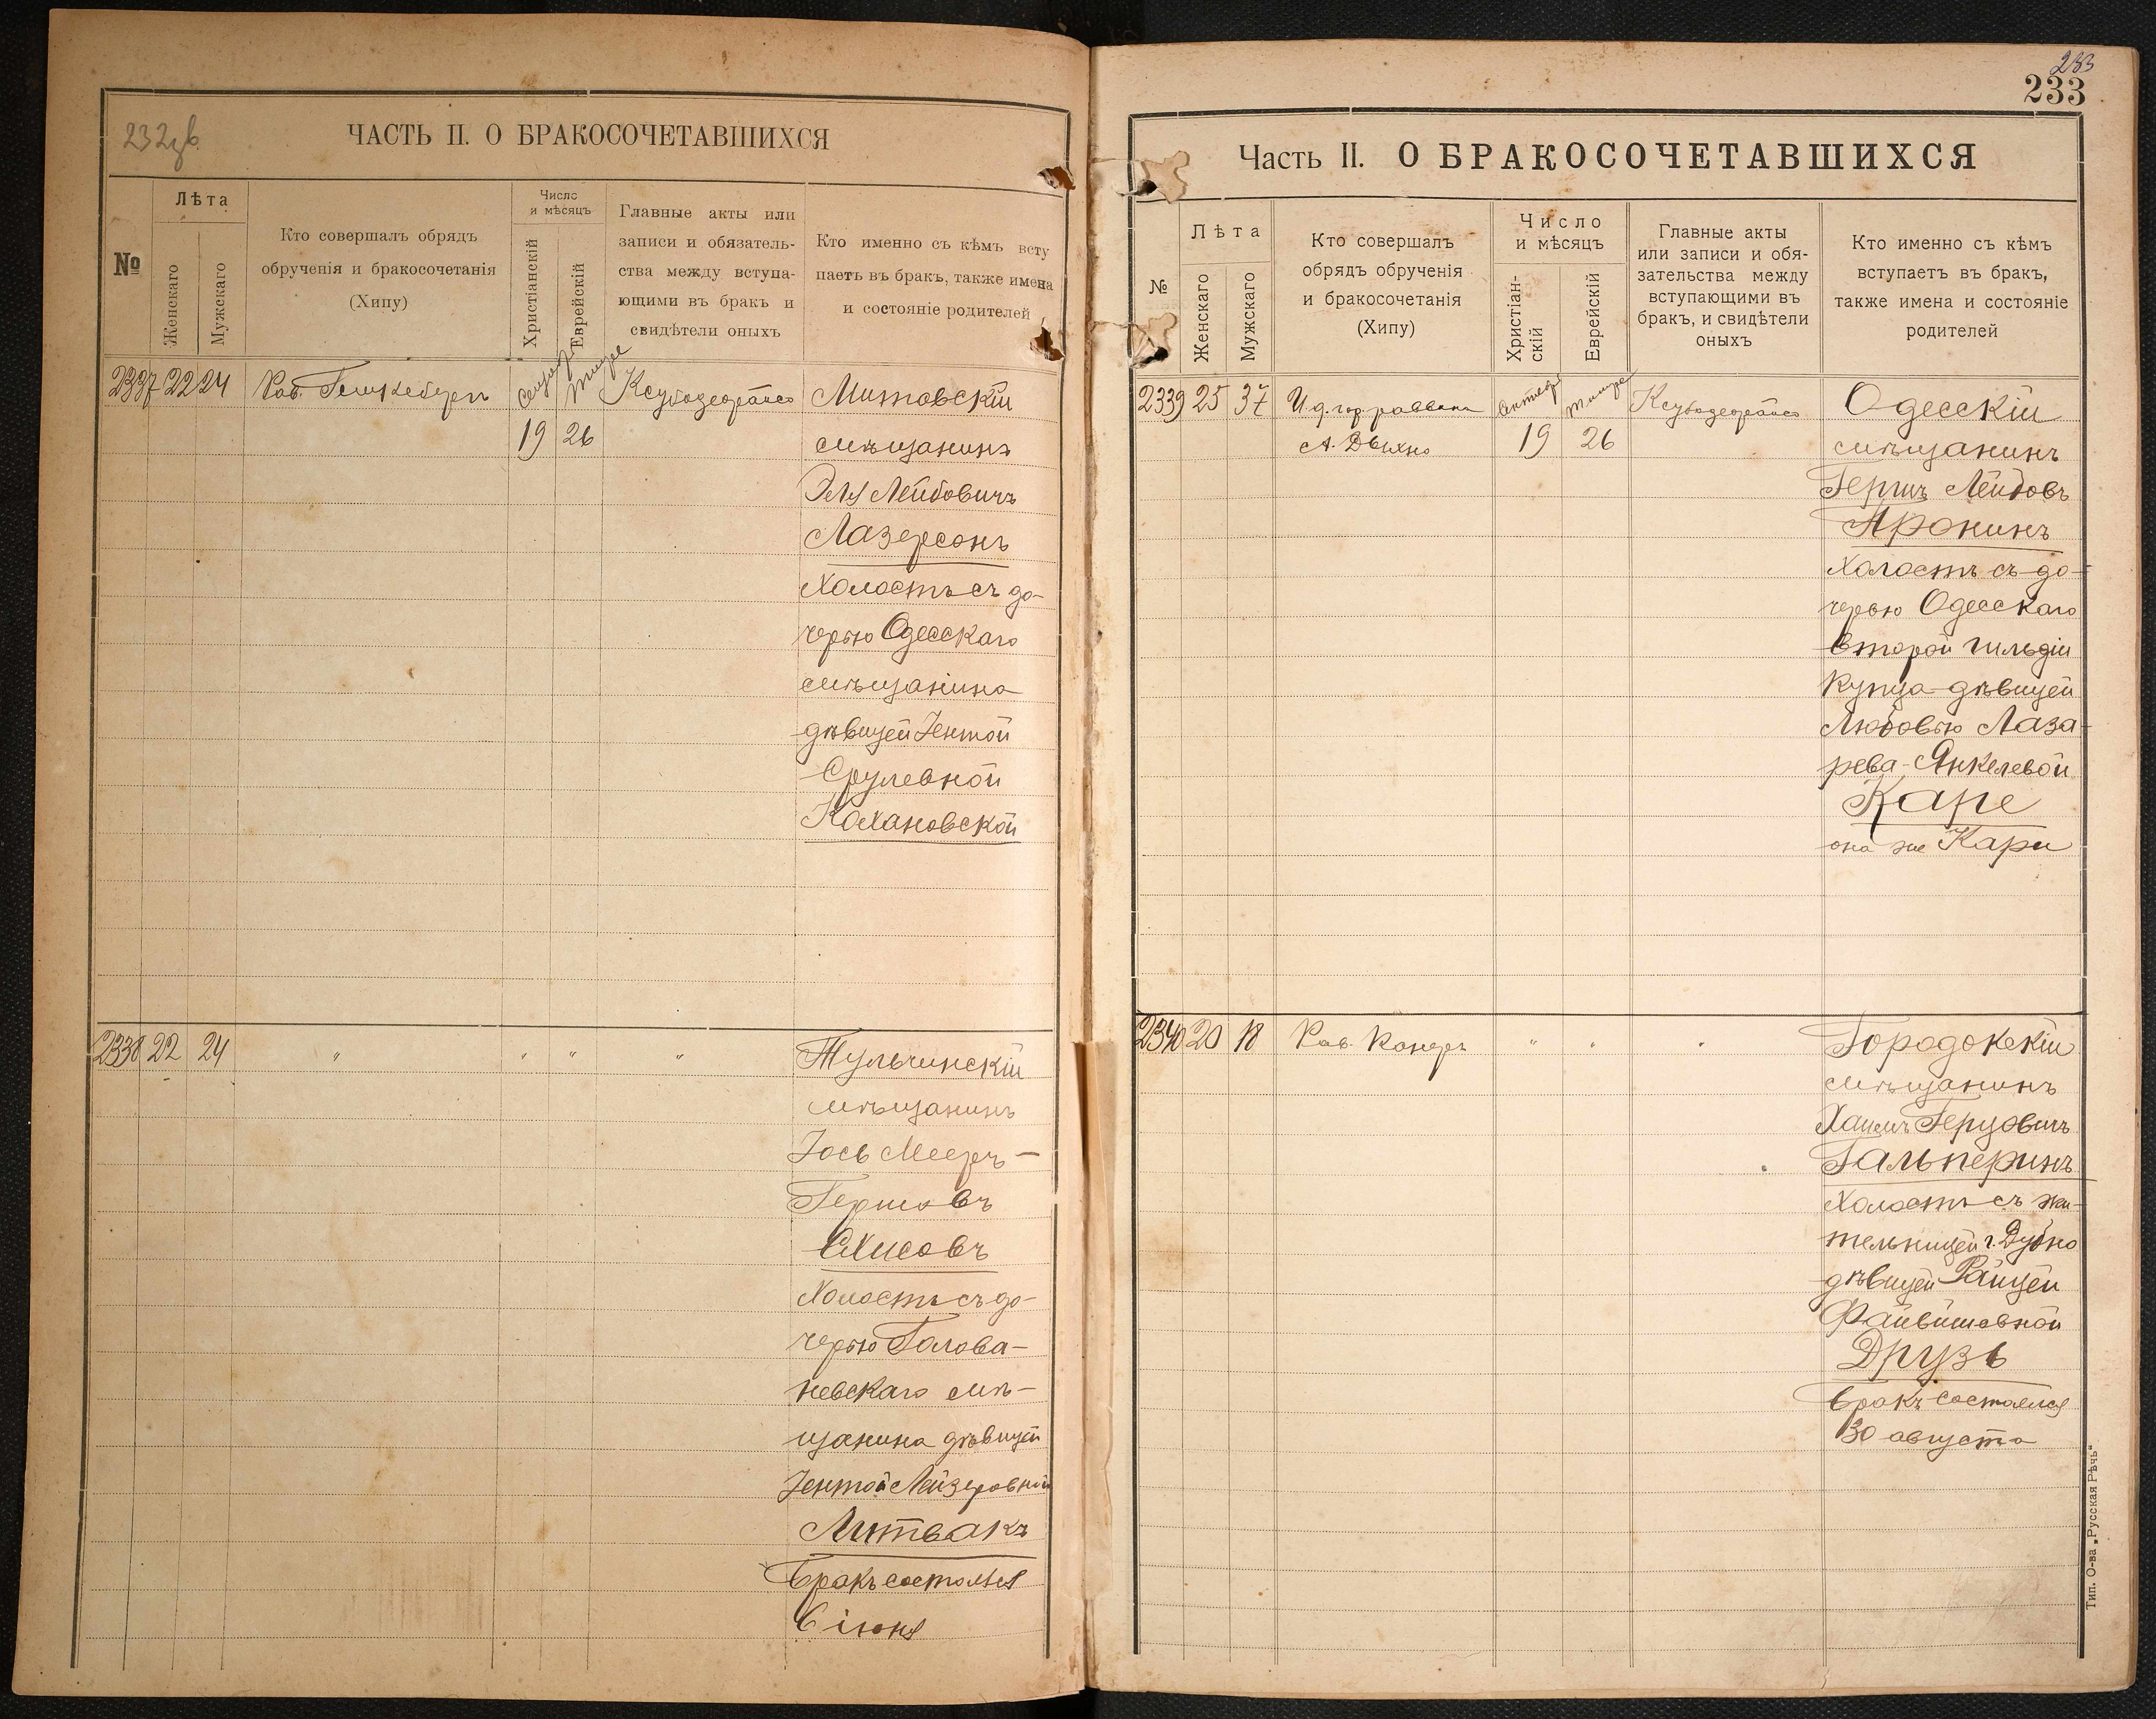 232зв.
ЧАСТЬ II. О БРАКОСОЧЕТАВШИХСЯ
№
Лѣта
Женскаго
Мужскаго
Кто совершалъ обрядъ
обрученія и бракосочетанія
(Хипу)
Число
и мѣсяцъ
Христіанскій
Еврейскій
Главные акты или
записи и обязатель-
ства между вступа-
ющими въ бракъ и
свидѣтели оныхъ
Кто именно съ кѣмъ всту
паетъ въ бракъ, также имена
и состояніе родителей
2337 22 24 Рав.
19 26
Митовскій
мѣщанинъ
Эля Лейбовичъ
Лазерсонъ
Холостъ съ до-
черью Одесскаго
мѣщанина
дѣвицей Іентой
Срулевной
Кохановской
2338 22 24 " " " "
Тульчинскій
мѣщанинъ
Іось Мееръ-
Гершовъ
холостъ съ до-
черью Голова-
невскаго мѣ-
щанина дѣвицей
Іентой Лейзеровной
Литвакъ
Бракъ состоялся
6 іюня
233
233
Часть II. О БРАКОСОЧЕТАВШИХСЯ
№
Лѣта
Женскаго
Мужскаго
Кто совершалъ
обрядъ обрученія
и бракосочетанія
(Хипу)
Число
и мѣсяцъ
Христіан-
скій
Еврейскій
Главные акты
или записи и обя-
зательства между
вступающими въ
бракъ, и свидѣтели
оныхъ
Кто именно съ кѣмъ
вступаетъ въ бракъ,
также имена и состояніе
родителей
2339 25 37 И. д. гор. раввина
А. Дыхно 19 26
Одесскій
мѣщанинъ
Гершъ Лейбовъ
Аронинъ
Холостъ съ до-
черью Одесскаго
второй гильдіи
купца дѣвицей
Любовью Лаза-
рева-Янкелевой
Каре
она же Кари
2340 20 18 Рав. " " "
Городокскій
мѣщанинъ
Хаимъ Герцовичъ
Гальперинъ
Холостъ съ жи-
тельницей г. Дубно
дѣвицей Райцей
Файвишевной
Друзь
Бракъ состоялся
30 августа
Тип. О-ва „Русская Рѣчь“